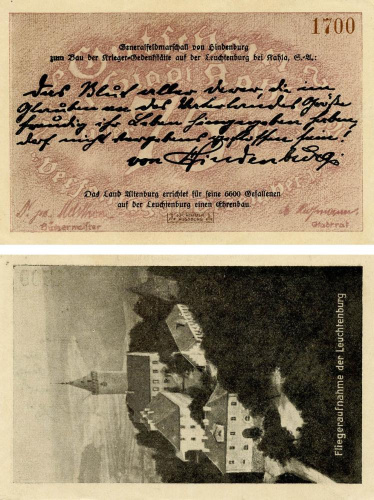 1700
Generalfeldmarschall von Hindenburg
zum Bau der Krieger-Gedenkstätte auf der Leuchtenburg bei Kahla, S.-A.:
Das Blut aller derer, die im
Glauben an des Vaterlandes Größe
freudig ihr Leben hingegeben haben,
darf nicht vergebens geflossen sein!
von Hindenburg.
Das Land Altenburg errichtet für seine 6600 Gefallenen
auf der Leuchtenburg einen Ehrenbau.
Bürgermeister
Stadtrat
Fliegeraufnahme der Leuchtenburg